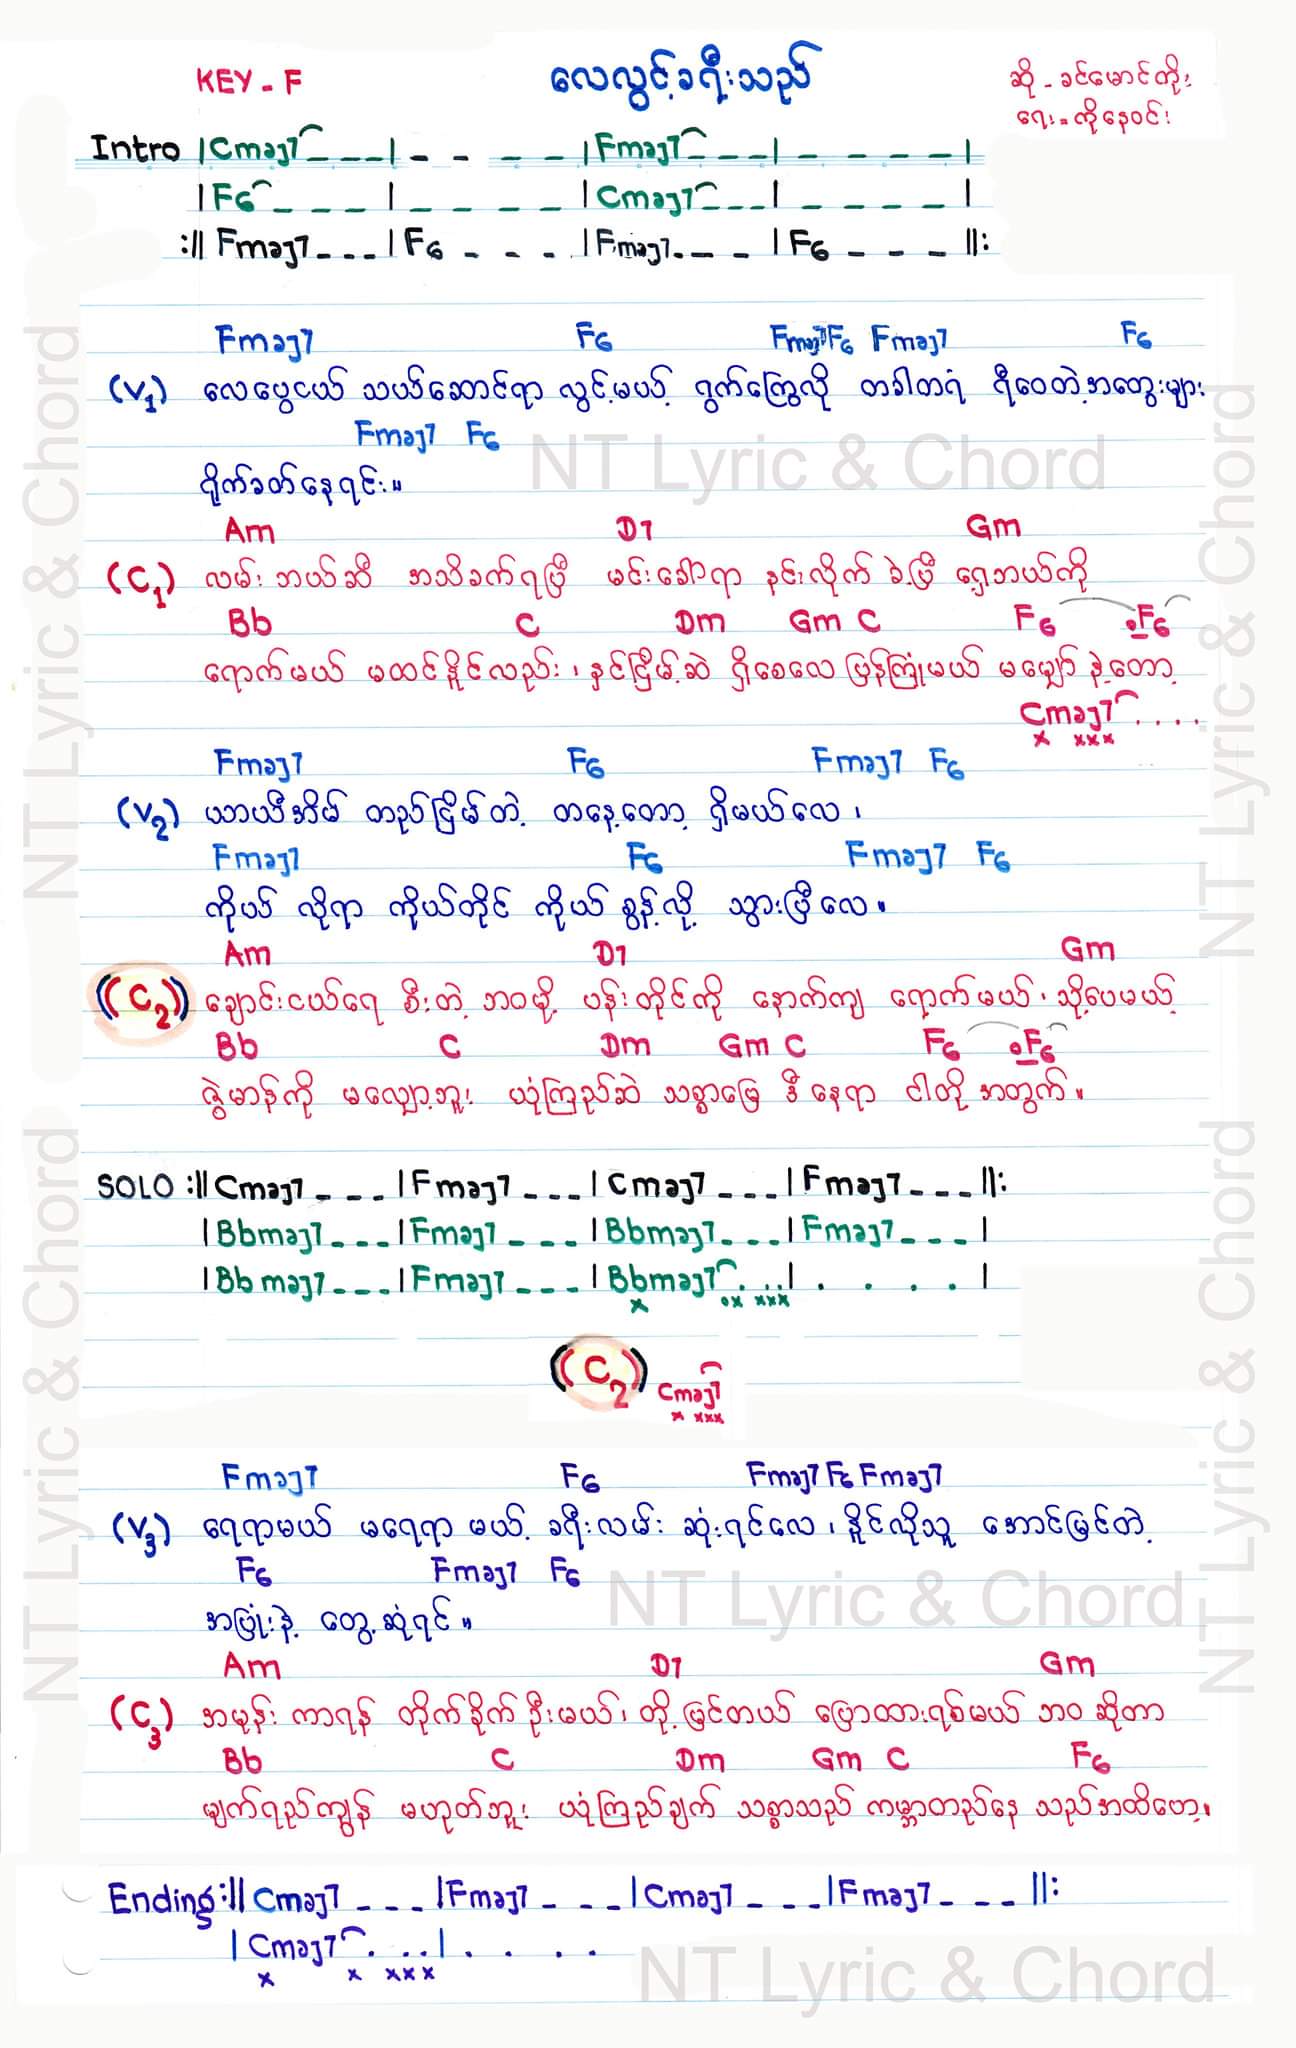 KEY - F
လေလွင့်ခရီးသည်
ဆို - ခင်မောင်တိုး
ရေး - ကိုနေဝင်း
Intro |Cmaj7 _ _ _ | - - - - |Fmaj7 _ _ _ | - - - - |
|F6 _ _ _ | _ _ _ _ |Cmaj7 _ _ _ | _ _ _ _ |
:|| Fmaj7 _ _ _ |F6 - - - |Fmaj7 - - - |F6 - - - ||:
Fmaj7 F6 Fmaj7 F6 Fmaj7 F6
(V1) လေပွေငယ် သယ်ဆောင်ရာ လွင့်မယ့် ရွက်ကြွေလို တခါတရံ ရီဝေတဲ့အတွေးများ
Fmaj7 F6
ရိုက်ခတ်နေရင်း။
Am D7 Gm
(C1) လမ်းဘယ်ဆီ အသိခက်ရပြီ မင်းခေါ်ရာ နင်းလိုက်ခဲ့ပြီ ရှေ့ဘယ်ကို
Bb C Dm Gm C F6 .F6
ရောက်မယ် မထင်နိုင်လည်း၊ နှင်ငြိမ့်ဆဲ ရှိစေလေ ပြန်ကြုံမယ် မမျှော်နဲ့တော့
Cmaj7 . . . .
x xxx
Fmaj7 F6 Fmaj7 F6
(V2) ယာယီအိမ် တည်ငြိမ်တဲ့ တနေ့တော့ ရှိမယ်လေ၊
Fmaj7 F6 Fmaj7 F6
ကိုယ် လိုရာ ကိုယ်တိုင် ကိုယ် စွန့်လို့ သွားပြီလေ။
Am D7 Gm
(C2) ချောင်းငယ်ရေ စီးတဲ့ ဘဝမို့ ပန်းတိုင်ကို နောက်ကျ ရောက်မယ်၊ သို့ပေမယ့်
Bb C Dm Gm C F6 .F6
ဇွဲမာန်ကို မလျှော့ဘူး ယုံကြည်ဆဲ သစ္စာမြေ ဒီနေရာ ငါတို့ အတွက်။
SOLO :|| Cmaj7 _ _ _ |Fmaj7 _ _ _ | Cmaj7 _ _ _ |Fmaj7 _ _ _ ||:
|Bbmaj7 _ _ _ |Fmaj7 _ _ _ |Bbmaj7 _ _ _ |Fmaj7 _ _ _ |
|Bbmaj7 _ _ _ |Fmaj7 _ _ _ |Bbmaj7 . . . | . . . . |
x ox xxx
(C2) Cmaj7
x xxx
Fmaj7 F6 Fmaj7 F6 Fmaj7
(V3) ရေရာမယ် မရေရာ မယ့် ခရီးလမ်း ဆုံးရင်လေ၊ နိုင်လိုသူ အောင်မြင်တဲ့
F6 Fmaj7 F6
အပြုံးနဲ့ တွေ့ဆုံရင်။
Am D7 Gm
(C3) အမုန်း ကာရန် တိုက်ခိုက်ဦးမယ်၊ တို့မြင်တယ် ပြောထားရစ်မယ် ဘဝ ဆိုတာ
Bb C Dm Gm C F6
မျက်ရည်ကျွန် မဟုတ်ဘူး ယုံကြည်ချက် သစ္စာသည် ကမ္ဘာတည်နေ သည်အထိပေ့ါ။
Ending :|| Cmaj7 _ _ _ |Fmaj7 _ _ _ |Cmaj7 _ _ _ |Fmaj7 _ _ _ ||:
| Cmaj7 . . . | . . . .
x x xxx
NT Lyric & Chord
NT Lyric & Chord
NT Lyric & Chord
NT Lyric & Chord
NT Lyric & Chord
NT Lyric & Chord
NT Lyric & Chord